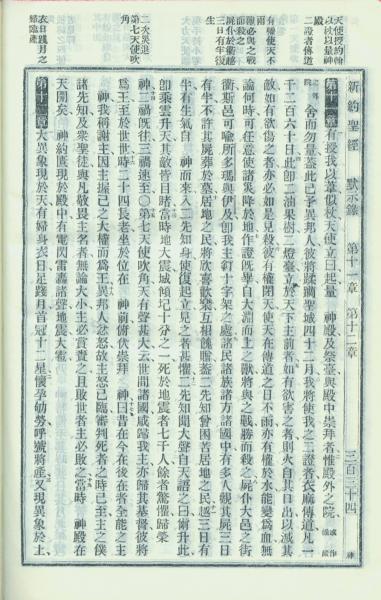 新約聖經 默示錄 第十一章 第十二章 三百三十四
天使授約翰
以杖以量神
殿
二證者傳道
有權使天不
雨
獸必與之戰
而殺之
屍仆於衢越
三日有半復
生
二次災退
第七天使吹
角
衣日踐月之
婦臨產
第十一章 有授我以葦似杖天使立曰起量 神殿及祭臺與殿中崇拜者惟殿外之院
舍而勿量蓋此已予異邦人彼將蹂躪聖城四十二月我將使我之二證者衣麻傳道凡一
千二百六十日此卽二油果樹二燈臺立於天下主前者如有欲害之者則火自其口出以滅其
敵如有欲傷之者亦必如是見殺彼有權閉天使天在傳道之日不雨亦有權於水能變爲血無
論何時可任意使諸災降於地作證旣畢自大淵而上之獸將與之戰勝而殺之屍仆大邑之街
衢斯邑可喻所多瑪與伊及卽我主釘十字架之處諸民諸族諸方諸國中有多人觀其屍三日
有半不許其屍葬於墓居地之民將欣喜歡樂互相餽贈蓋二先知曾困苦居地之民越三日有
半有生氣自 神而來入二先知身使復起立見之者甚懼二先知聞大聲自天語之曰爾升此
卽乘雲升天其敵皆目睹當時地大震城傾圮十分之一死於地震者七千人餘者驚懼歸榮
神二禍旣往三禍速至○第七天使吹角天有聲甚大云世間諸國咸歸我主亦歸其基督彼將
爲王至於世世時二十四長老坐於位在 神前俯伏崇拜 神曰昔在今在後在者全能之主
神我稱謝主因主握己之大權而爲王異邦人忿怒故主怒已臨審判死者之時已至主之僕
諸先知及衆聖徒與凡敬畏主名者無論大小主必賞賚之且敗世者主必敗之當時 神殿在
天開矣 神約匱現於殿中有電閃雷轟諸聲地震大雹
第十二章 大異象現於天有婦身衣日足踐月首冠十二星懷孕劬勞呼號將產又現異象於上